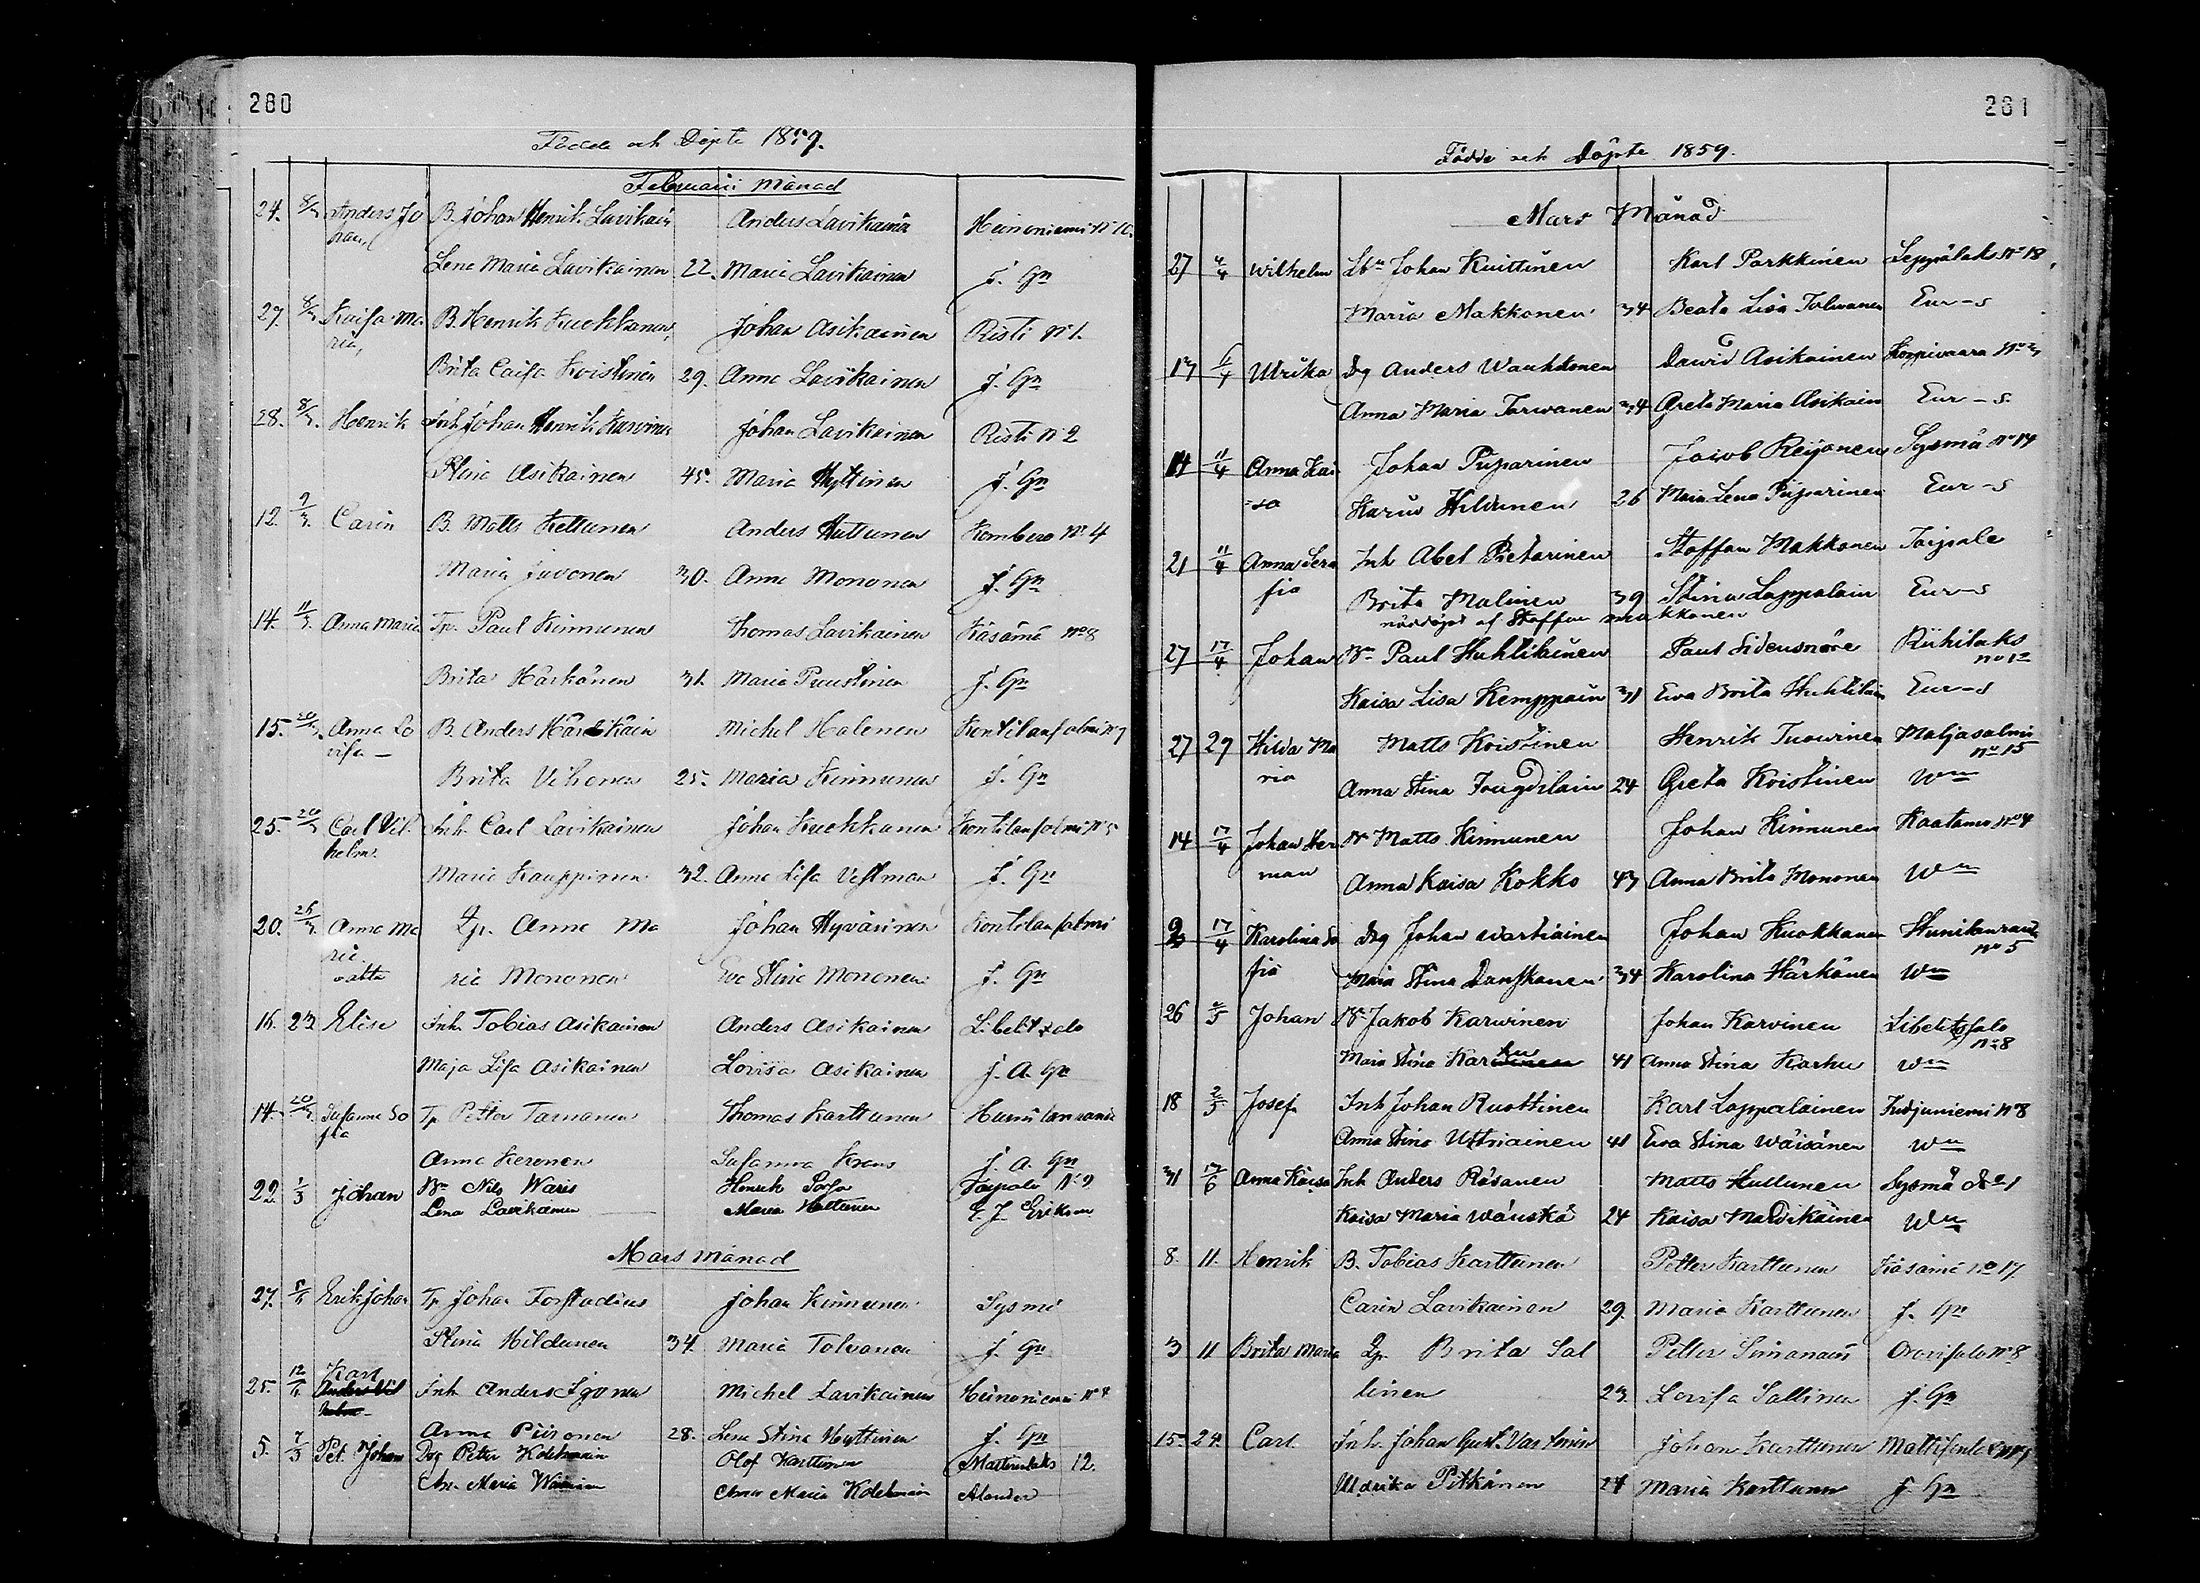 280
Födde och Döpte 1859.
Februarii Månad
24. 8/3 Anders Jo B. Johan Henrik Lavikain Anders Lavikainen Heinoniemi No 10.
han,
Lena Maria Lavikainen 22. Maria Lavikainen J. Gn
27. 8/3 Kaisa Ma B. Henrik Kuokkanen, Johan Asikainen Risti No 1.
ria,
Brita Caisa Koistinen 29. Anna Lavikainen J. Gn
28. 8/3. Henrik Inh Johan Henrik Johan Lavikainen Risti No 2
Stina Asikainen 45. Maria Hyttinen J. Gn
12. 9/3. Carin B. Matts Kettunen Anders Huttunen Kombero No 4
Maria Juvonen 30. Anna Mononen J. Gn
14. 11/3. Anna Maria Tp. Paul Kinnunen Thomas Lavikainen Käsämä No 8
Brita Härkönen 31. Maria Puustinen J. Gn
15. 20/3. Anna Lo B. Anders Michel Halonen Kontilansalmi No 7
visa
Brita Vihonen 25. Maria Kinnunen J. Gn
25. 20/3 Carl Vil Inh. Carl Lavikainen Johan Kuokkanen Kontilansalmi No 5
helm.
Maria Kauppinen 32. Anna Lisa Vestman J. Gn
20. 26/3. Anna Ma Qp. Anna Ma Johan Hyvärinen Kontilansalmi
ria
oäkta ria Mononen Eva Stina Mononen J. Gn
16. 23 Elisa Inh. Tobias Asikainen Anders Asikainen Libelitsalo
Maja Lisa Asikainen Lovisa Asikainen J. A. Gn
14. 20/3 Susanna So Tp Petter Tarvanen Thomas Karttunen Hunilanranda
fia
Anna Keronen Susanna J. A. Gn
22. 1/3 Johan Bn Nils Waris Henrik Taipale No 9
Lena Lavikainen Maria
Mars månad
27. 5/4 Erik Johan Tp Johan Forstadius Johan Kinnunen Sysmä
Stina Hildunen 34. Maria Tolvanen J. Gn
Karl
25. 12/4 Anders Vil Inh. Anders Igonen Michel Lavikainen Heinoniemi No 4
helm
Anna Piironen 28. Lena Stina Hyttinen J. Gn
5. 7/3 Pet. Johan Drg Peter Kolehmain Olof Karttunen Martonlaks 12.
Ann. Maria Anna Maria Kolehmain Alander
281
Födde och Döpte 1859.
Mars Månad
27 4/4 Wilhelm Lbn Johan Kuittinen Karl Parkkinen Leppälaks No 18
Maria Makkonen 34 Beata Lisa Tolwanen Eur-s
13 11/4 Ulrika Drg Anders Wauhkonen Dawid Asikainen Koppivaara No 3
Anna Maria Tarwanen 34 Greta Maria Asikain Eur-s
14 11/4 Anna Kai Johan Piiparinen Jacob Reijonen Sysmä No 14
-sa Karin Hildunen 26 Maria Lena Piiparinen Eur-s
21 11/4 Anna Sera Inh Abel Pietarinen Staffan Makkonen Taipale
fia Brita Malinen 39 Stina Lappalain Eur-s
nöddöpt af Staffan Makkonen
27 17/4 Johan Bn Paul Huhtilainen Paul Sidensnöre Riihilaks
No 12
Kaisa Lisa Kemppain 31 Eva Brita Huhtilain Eur-s
27 29 Hilda Ma Matts Koistinen Henrik Tuowinen Maljasalmi
No 15
ria Anna Stina Tougdilain 24 Greta Koistinen Wm
14 17/4 Johan Her Bn Matts Kinnunen Johan Kinnunen Kaatamo No 4
man Anna Kaisa Kokko 43 Anna Brita Mononen Wm
2 17/4 Karolina So Drg Johan Wartiainen Johan Kuokkanen Hunilanranda
No 5
fia Maia Stina Danskanen 34 Karolina Härkönen Wm
26 2/5 Johan Bn Jakob Karwinen Johan Karvinen Libelitssalo
No 8
Maia Stina Karhu 41 Anna Stina Karhu Wm
18 2/5 Josef Inh Johan Ruottinen Karl Lappalainen No 8
Anna Stina Uttriainen 41 Eva Stina Wäisänen Wm
31 13/6 Anna Kaisa Inh Anders Räsänen Matts Hullunen Sysmä No 1
Kaisa Maria Wänskä 24 Kaisa Wm
8. 11. Henrik B. Tobias Karttunen Petter Karttunen Käsämä No 17
Carin Lavikainen 29. Maria Karttunen J. Gn
3 11 Brita Maria Qp. Brita Sal Petter Simanain Orovisalo No 8
linen 23. Lovisa Sallinen J. Gn
15. 24. Carl Inh. Johan Gust. Johan Karttunen Mattisenlaks
Uldrika Pitkänen 24 Maria Karttunen J. Gn